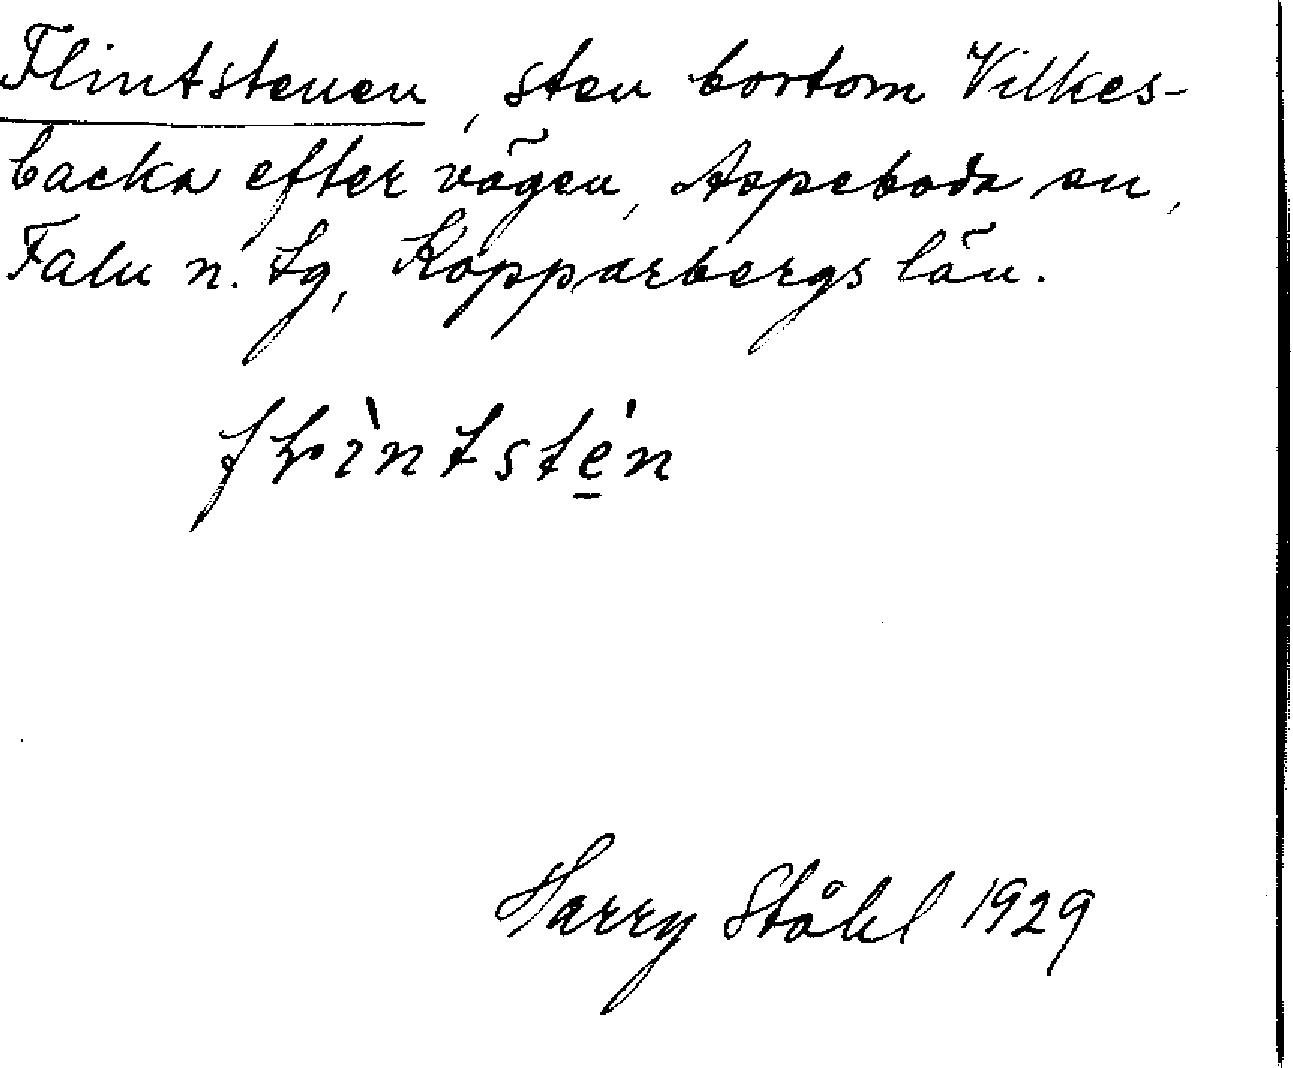 Flintstenen, sten bortom Vilkes-
backa efter vägen, Aspeboda sn,
Falu n. tg, Kopparbergs län.
fḷìntsté̠n
Harry Ståhl 1929